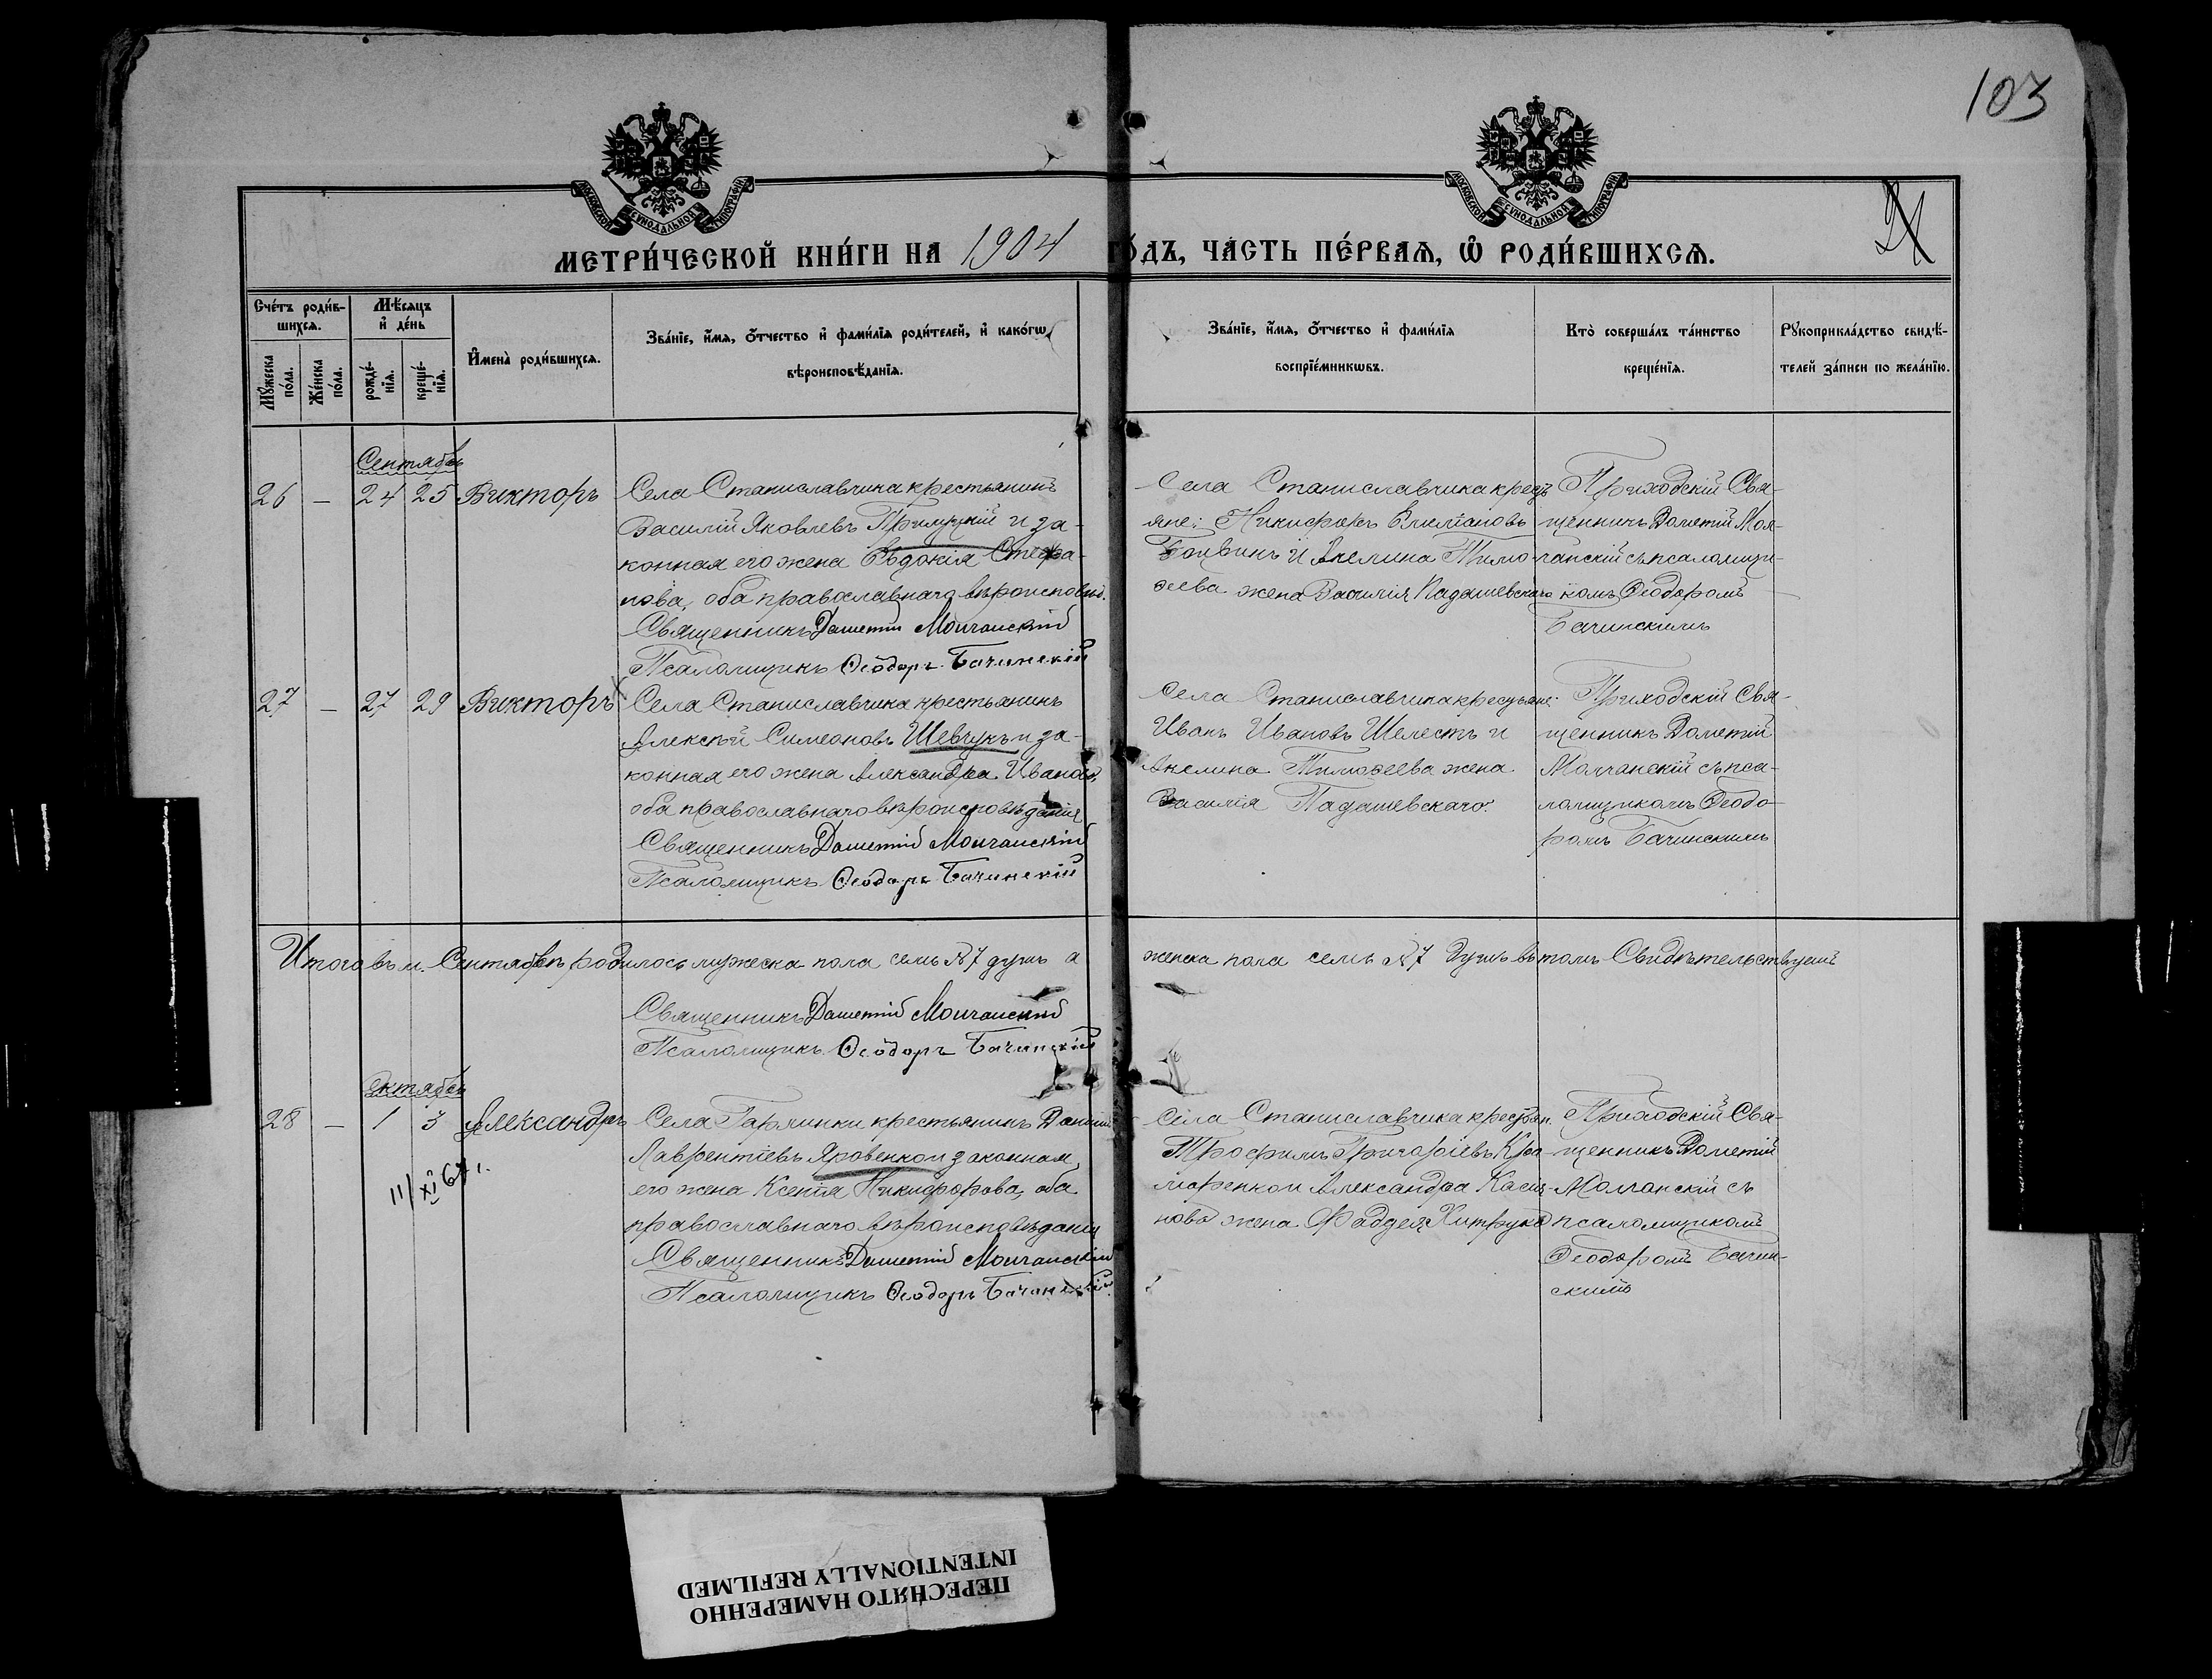 103
24
МОСКОВСКОЙ СѴНОДАЛЬНОЙ ТИПОГРАФІИ
МОСКОВСКОЙ СѴНОДАЛЬНОЙ ТИПОГРАФІИ
МЕТРИ́ЧЕСКОЙ КНИ́ГИ НА 1904 ГО́ДЪ, ЧА́СТЬ ПЕ́РВАѦ, Ѡ҆ РОДИ́ВШИХСѦ.
Сче́тъ роди́в-
шихсѧ.
Мꙋ́жеска по́ла.
Же́нска по́ла.
Мѣ́сѧцъ
и҆ де́нь
рожде́-
нїѧ.
креще́-
нїѧ.
И҆мена̀ роди́вшихсѧ.
Зва́нїе, и҆́мѧ, ѻ҆́тчество и҆ фами́лїѧ роди́телей, и҆ како́гѡ
вѣроисповѣ́данїѧ.
Зва́нїе, и҆́мѧ, ѻ҆́тчество и҆ фами́лїѧ
воспрїе́мникѡвъ.
Кто̀ соверша́лъ та́инство
креще́нїѧ.
Рꙋкоприкла́дство свидѣ́-
телей за́писи по жела́нїю.
Сентябрь
26 — 24 25 Викторъ
Села Станиславчика крестьянинъ
Василій Яковлевъ Прилуцкій и за-
конная его жена Евдокія Стефа-
нова, оба православнаго вѣроисповѣд.
Священникъ Дометій Молчанскій
Псаломщикъ Ѳеодоръ Бачинскій
Села Станиславчика крестъ
яне: Никифоръ Емиліановъ
и Акелина Тимо-
ѳеева жена Василія Падашевскаго
Приходскій Свя-
щенникъ Дометій Мол-
чанскій съ псаломщи-
комъ Ѳеодоромъ
Бачинскимъ
27 — 27 29 Викторъ
Села Станиславчика крестьянинъ
Алексѣй Симеоновъ Шевчукъ и за-
конная его жена Александра Иванова,
оба православнаго вѣроисповѣданія
Священникъ Дометій Молчанскій
Псаломщикъ Ѳеодоръ Бачинскій
Села Станиславчика крестьяне:
Иванъ Ивановъ Шелестъ и
Акелина Тимоѳеева жена
Василія Падашевскаго.
Приходскій Свя-
щенникъ Дометій
Молчанскій съ пса-
ломщикомъ Ѳеодо-
ромъ Бачинскимъ
Итого въ м. Сентябрѣ родилось мужеска пола семь № 7 душъ а женска пола семь № 7 душъ въ томъ Свидѣтельствуемъ
Священникъ Дометій Молчанскій
Псаломщикъ Ѳеодоръ Бачинскій
Октябрь
28 — 1 3 Александръ
11/XI 67 г.
Села Гармики крестьянинъ Даніилъ
Лаврентіевъ Яровенко и законная
его жена Ксенія Никифорова, оба
православнаго вѣроисповѣданія
Священникъ Дометій Молчанскій
Псаломщикъ Ѳеодоръ Бачинскій
Села Станиславчика крестьян.
Трофимъ Григоріевъ
и Александра
нова жена Фаддея Хитрука
Приходскій Свя-
щенникъ Дометій
Молчанскій съ
псаломщикомъ
Ѳеодоромъ Бачин-
скимъ
ПЕРЕСНЯТО НАМЕРЕННО
INTENTIONALLY REFILMED